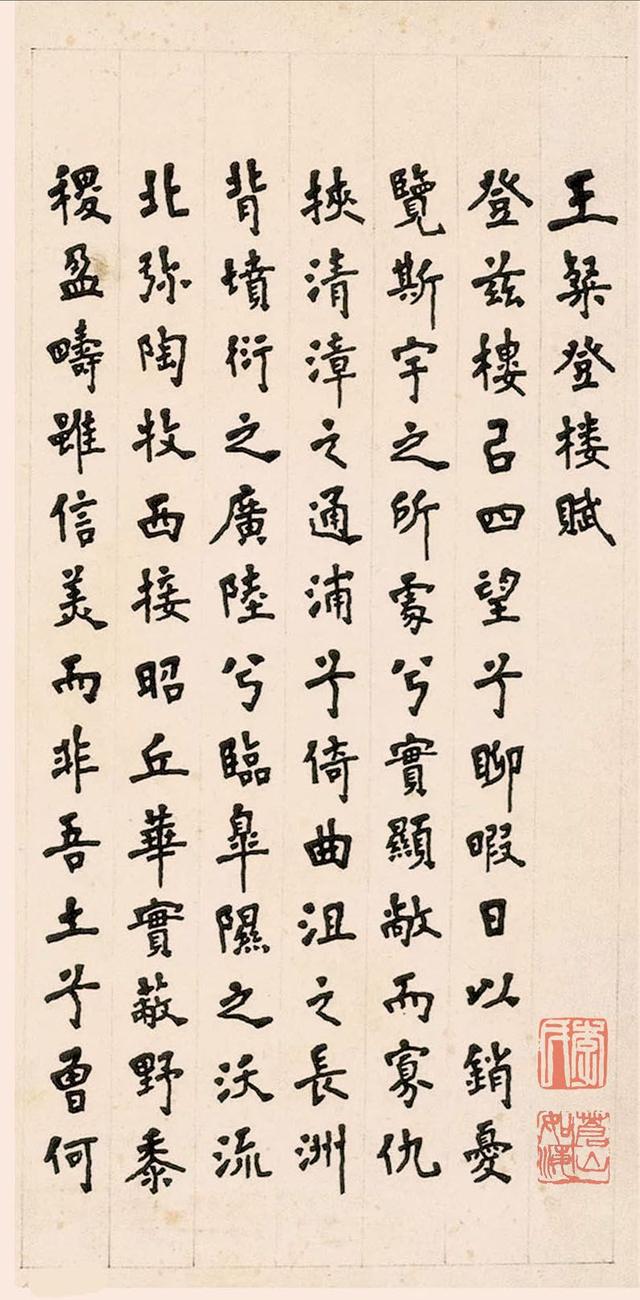 王粲登楼賦
登兹樓㠯四望兮聊暇日以銷憂
覽斯宇之所處兮實顯敞而寡仇
挾清漳之通浦兮倚曲沮之長洲
背墳衍之廣陸兮臨皐隰之沃流
北弥陶牧西接昭丘華實蔽野黍
稷盈疇雖信美而非吾土兮曾何